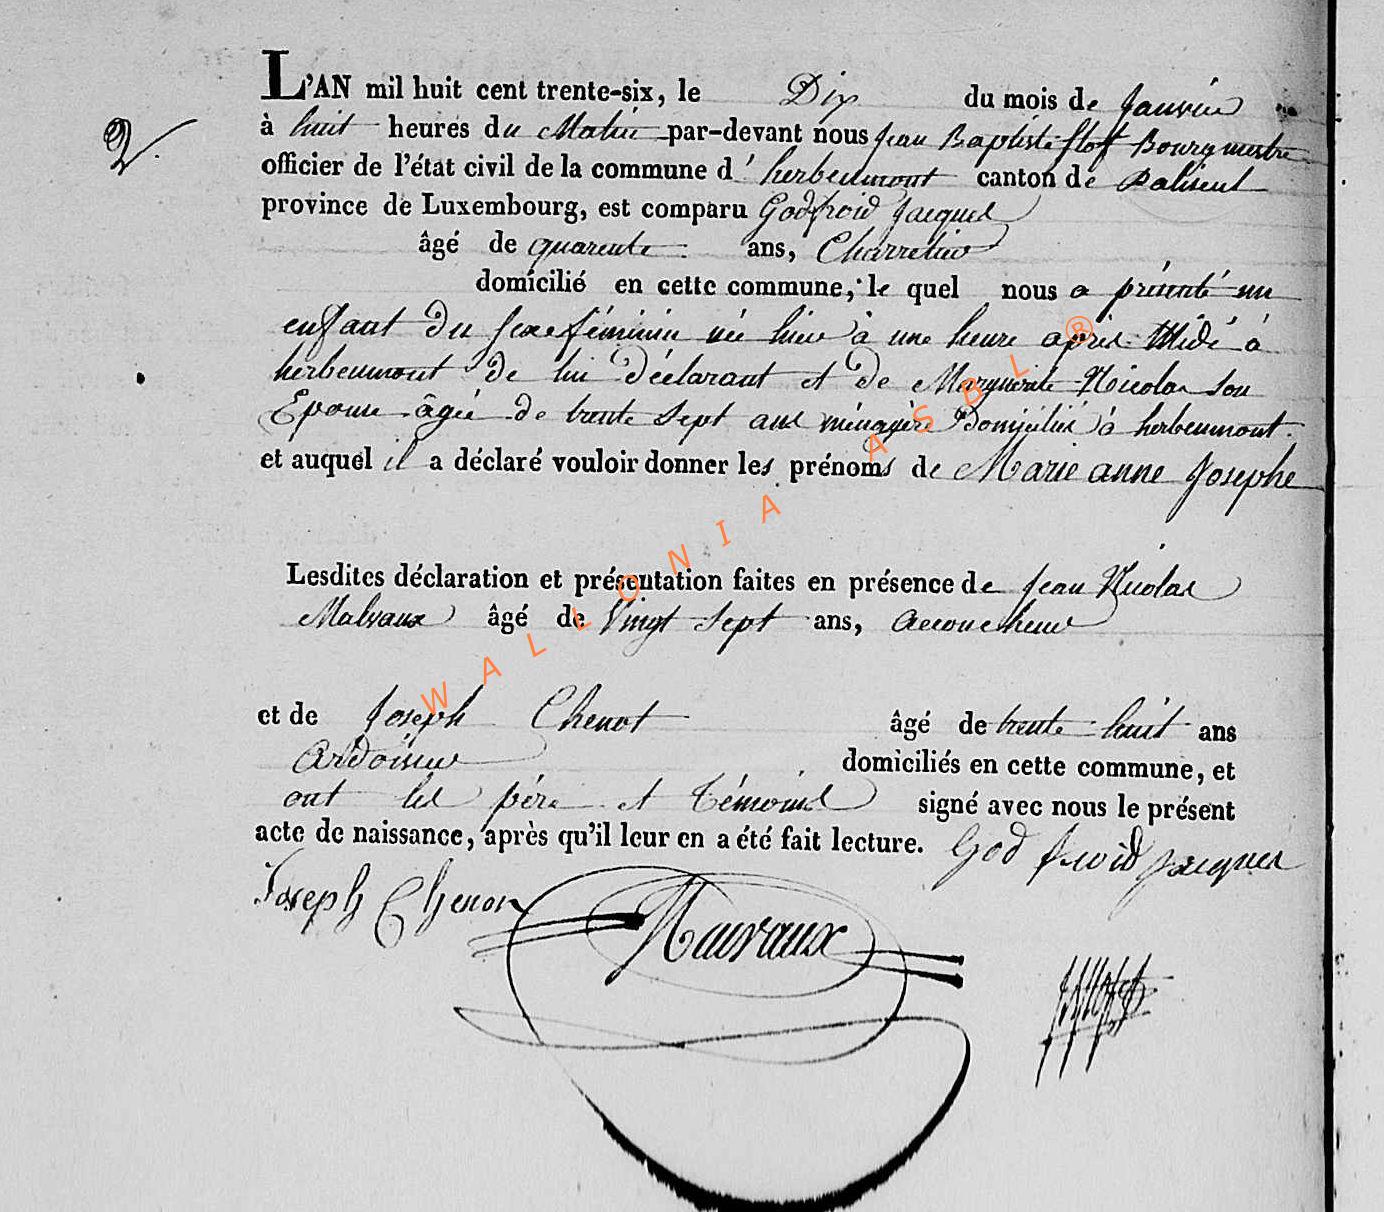 L'AN mil huit cent trente-six, le Dix du mois de Janvier
2.
à huit heures du Matin par-devant nous Jean Baptiste flot Bourgmestre
officier de l'état civil de la commune d'herbeumont canton de Paliseul
province de Luxembourg, est comparu Godfroid Jacques
âgé de quarente ans, Charretier
domicilié en cette commune, le quel nous a présenté un
enfant du sexe féminin née hier à une heure après Midi à
herbeumont de lui déclarant et de Marguerite Nicolas son
Epouse âgée de trente sept ans ménagère Domiciliés à herbeumont
et auquel il a déclaré vouloir donner les prénoms de Marie anne Josephe
Lesdites déclaration et présentation faites en présence de Jean Nicolas
Malvaux âgé de Vingt sept ans, accoucheur
et de Joseph Chenot âgé de trente huit ans
Ardoisier domiciliés en cette commune, et
ont les père et témoins signé avec nous le présent
acte de naissance, après qu'il leur en a été fait lecture. Godfroid Jacques
Joseph Chenot
Malvaux
WALLONIA ASBL ®